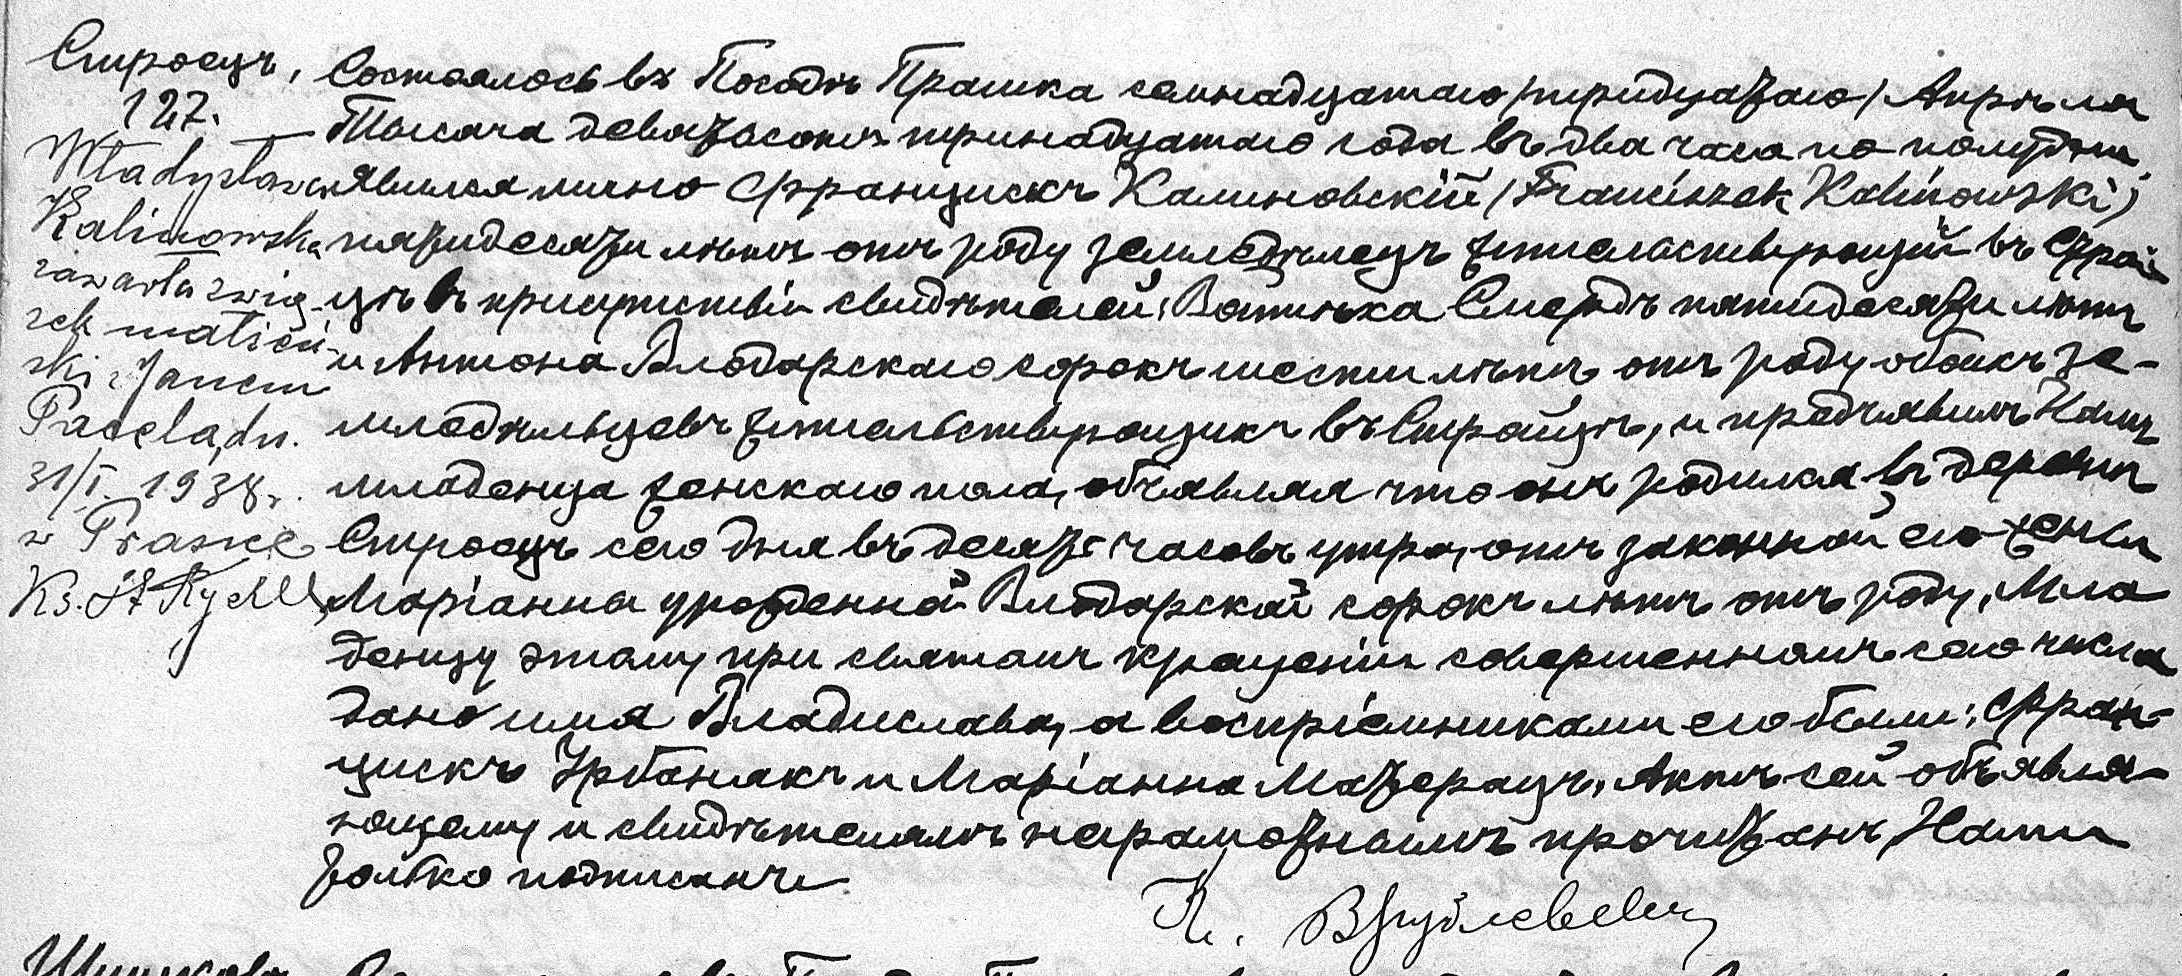 Строецъ,
127.
Władysława
Kalinowska
zawarła zwią-
zek małżeń-
ski z Janem
Pacela, dn.
31/I. 1938 r.
w Praszce
Ks. St
Состоялось въ Посадѣ Прашка семнадцатаго /тридцатаго/ Апрѣля
Тысяча девятьсотъ тринадцатаго года въ два часа по полудни
явился лично Францискъ Калиновскій /Franciszek Kalinowski/
пятидесяти лѣтъ отъ роду земледѣлецъ жительствующій въ Строй
цѣ въ присутствіи свидѣтелей: Войцѣха пятидесяти лѣтъ
и Антона Влодарскаго сорокъ шести лѣтъ отъ роду обоихъ зе-
мледѣльцевъ жительствующихъ въ Стройцѣ, и предъявилъ Намъ
младенца женскаго пола, объявляя что онъ родился въ деревнѣ
Строецъ сего дня въ десять часовъ утра, отъ законной его жены
Маріанны урожденной Влодарской сорокъ лѣтъ отъ роду, Мла
денцу этому при святомъ крещеніи совершенномъ сего числа
дано имя Владислава, а воспріемниками его были: Фран-
цискъ Урбанякъ и Маріанна Актъ сей объявля-
ющему и свидѣтелямъ неграмотнымъ прочитанъ, Нами
только подписанъ.
К.